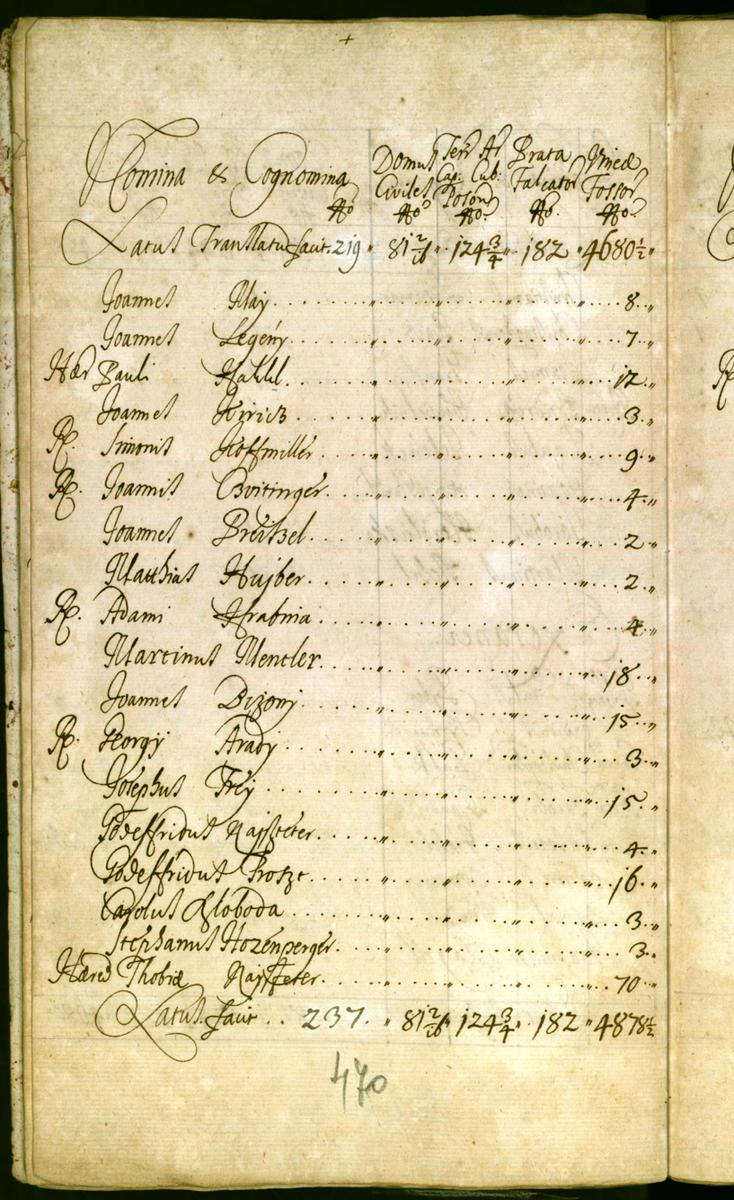 Nomina & Cognomina No Domus Civiles No Terr Ar Cap. Cub. Poson No. Prata Falcator No. Vineæ Fossor No
Latus Translatus facit. 219 „ 81 2/16 „ 124 3/4 „ 182 „ 4680 1/2 „
Joannes May 8 „
Joannes Legény 7 „
Hær Pauli Hakkl 12 „
Joannes Kiricz 3 „
R. Simonis Hoffmiller 9 „
R. Joannis Cvitinger 4 „
Joannes Breitzel 2 „
Matthias Hujber 2 „
R. Adami Hrabina 4 „
Martinus Mentler 18 „
Joannes Dizonj 15 „
R. Georgij Aradj 3 „
Josephus Frej 15 „
Godeffridus 4 „
Godeffridus Proszt 16 „
Carolus Szloboda 3 „
Stephanus Hozenperger 3 „
Hæred Thobiæ 70 „
Latus facit 237 „ 81 2/16 „ 124 3/4 „ 182 „ 4878 1/2 „
470